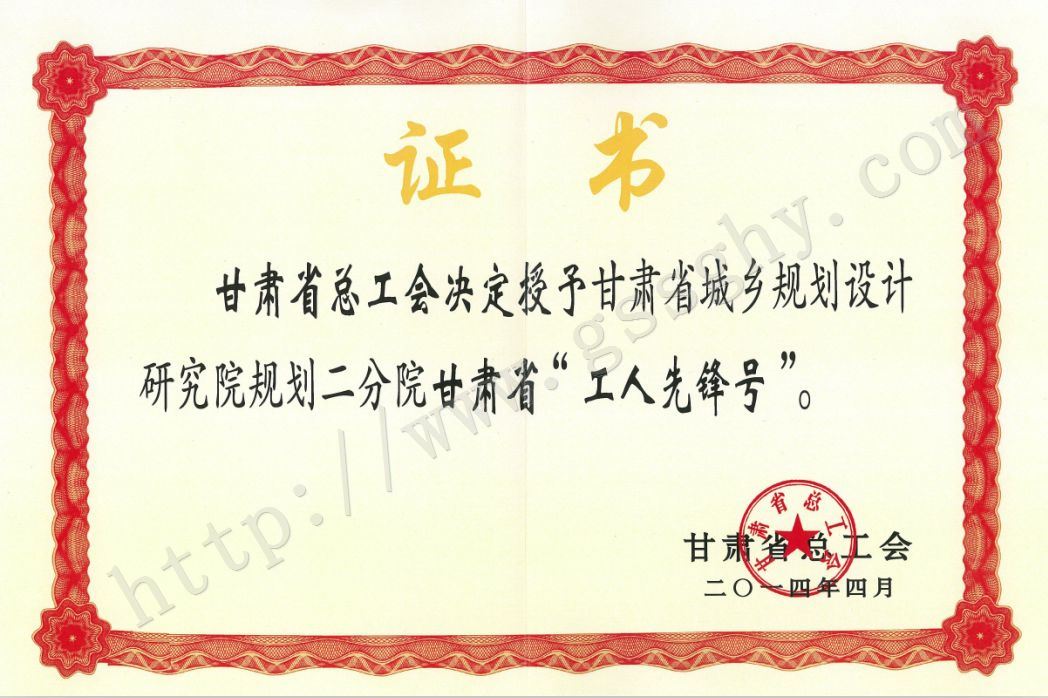 证书
甘肃省总工会决定授予甘肃省城乡规划设计
研究院规划二分院甘肃省“工人先锋号”。
甘肃省总工会
甘肃省总工会
二〇一四年四月
http://www.gssghy.com